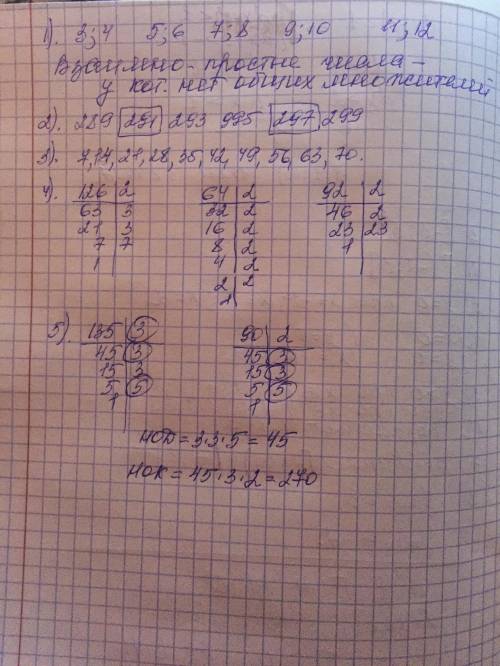 1). 3;4 5;6 7;8 9;10 11;12
Взаимно-простые числа –
у кот. нет общих множителей
2). 289 291 293 995 297, 299
3). 7,14,21,28,35,42,49,56,63,70.
4). 126 2 64 2 92 2
63 3 32 2 46 2
21 3 16 2 23 23
7 7 8 2 1
1 4 2
2 2
1
5) 135 3 90 2
45 3 45 3
15 3 15 3
5 5 5 5
1 1
НОД = 3·3·5 = 45
НОК = 45·3·2 = 270